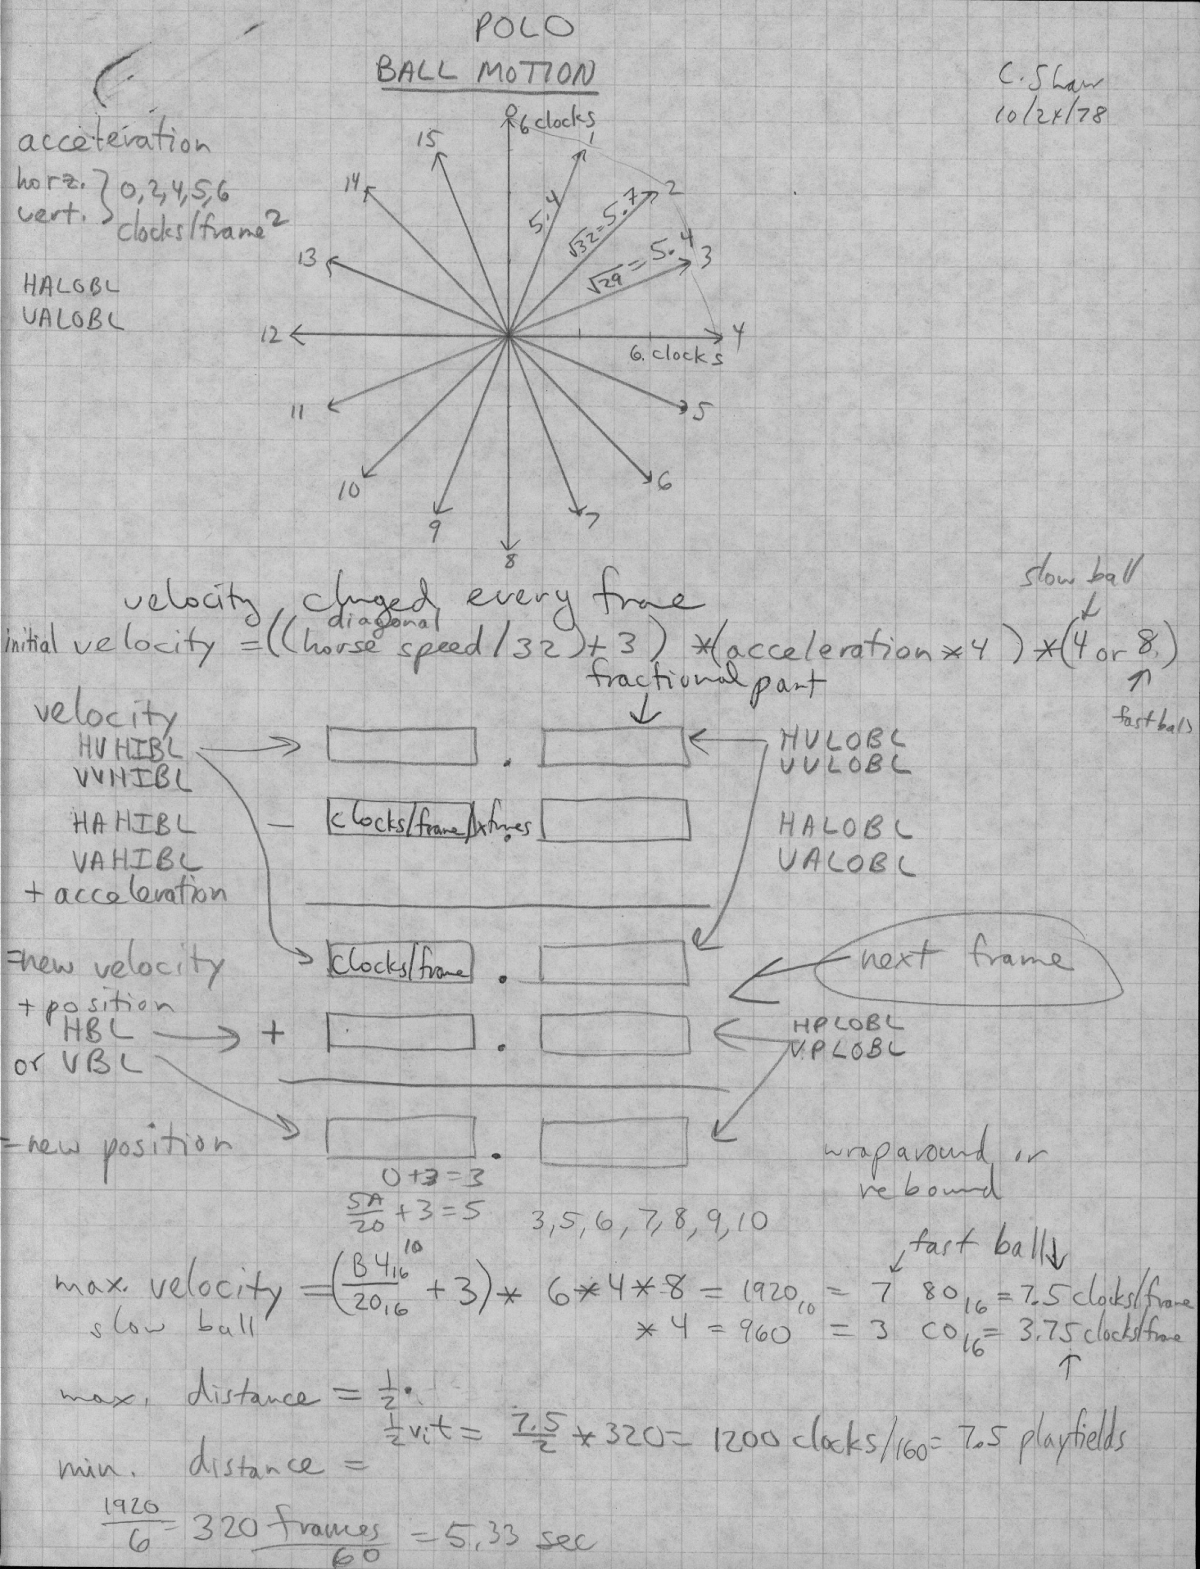 POLO
BALL MOTION
C. Shaw
10/24/78
acceleration
horz. } 0,2,4,5,6
vert. clocks/frame²
HALOBL
VALOBL
0
6 clocks
1
2
3
4
5
6
7
8
9
10
11
12
13
14
15
5.4
√32=5.7
√29=5.4
6. clocks
slow ball
velocity changed every frame
diagonal
initial velocity = ((horse speed/32)+3) *(acceleration*4) *(4 or 8)
fractional part
fast ball
velocity
HVHIBL
VVHIBL
HVLOBL
VVLOBL
HAHIBL - clocks/frame . HALOBL
VAHIBL VALOBL
+ acceleration
=new velocity clocks/frame . next frame
+ position
HBL + . HPLOBL
or VBL VPLOBL
=new position .
wraparound or
rebound
0+3=3
5A/20 +3=5 3,5,6,7,8,9,10
fast ball
max. velocity = (B4₁₆/20₁₆ + 3) * 6*4*8 = 1920₁₀ = 7 80₁₆ = 7.5 clocks/frame
10
slow ball * 4 = 960 = 3 C0₁₆ = 3.75 clocks/frame
max. distance = ½.
½vᵢt = 7.5/2 * 320 = 1200 clocks/160= 7.5 playfields
min. distance =
1920/6 = 320 frames/60 = 5.33 sec